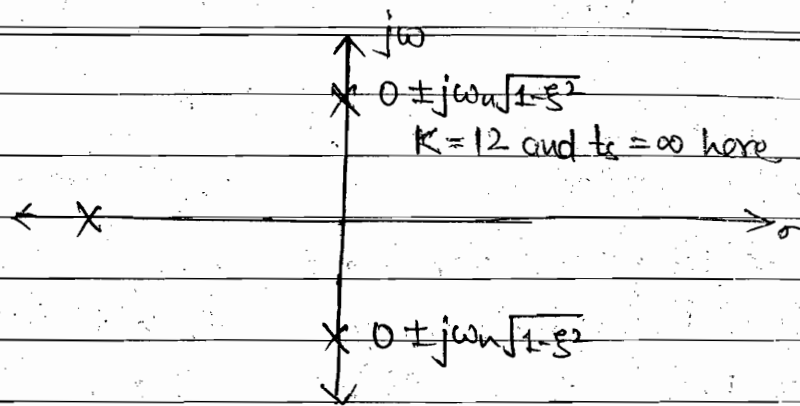 jω
0 ± jωn√1-ξ²
K = 12 and ts = ∞ here
σ
0 ± jωn√1-ξ²